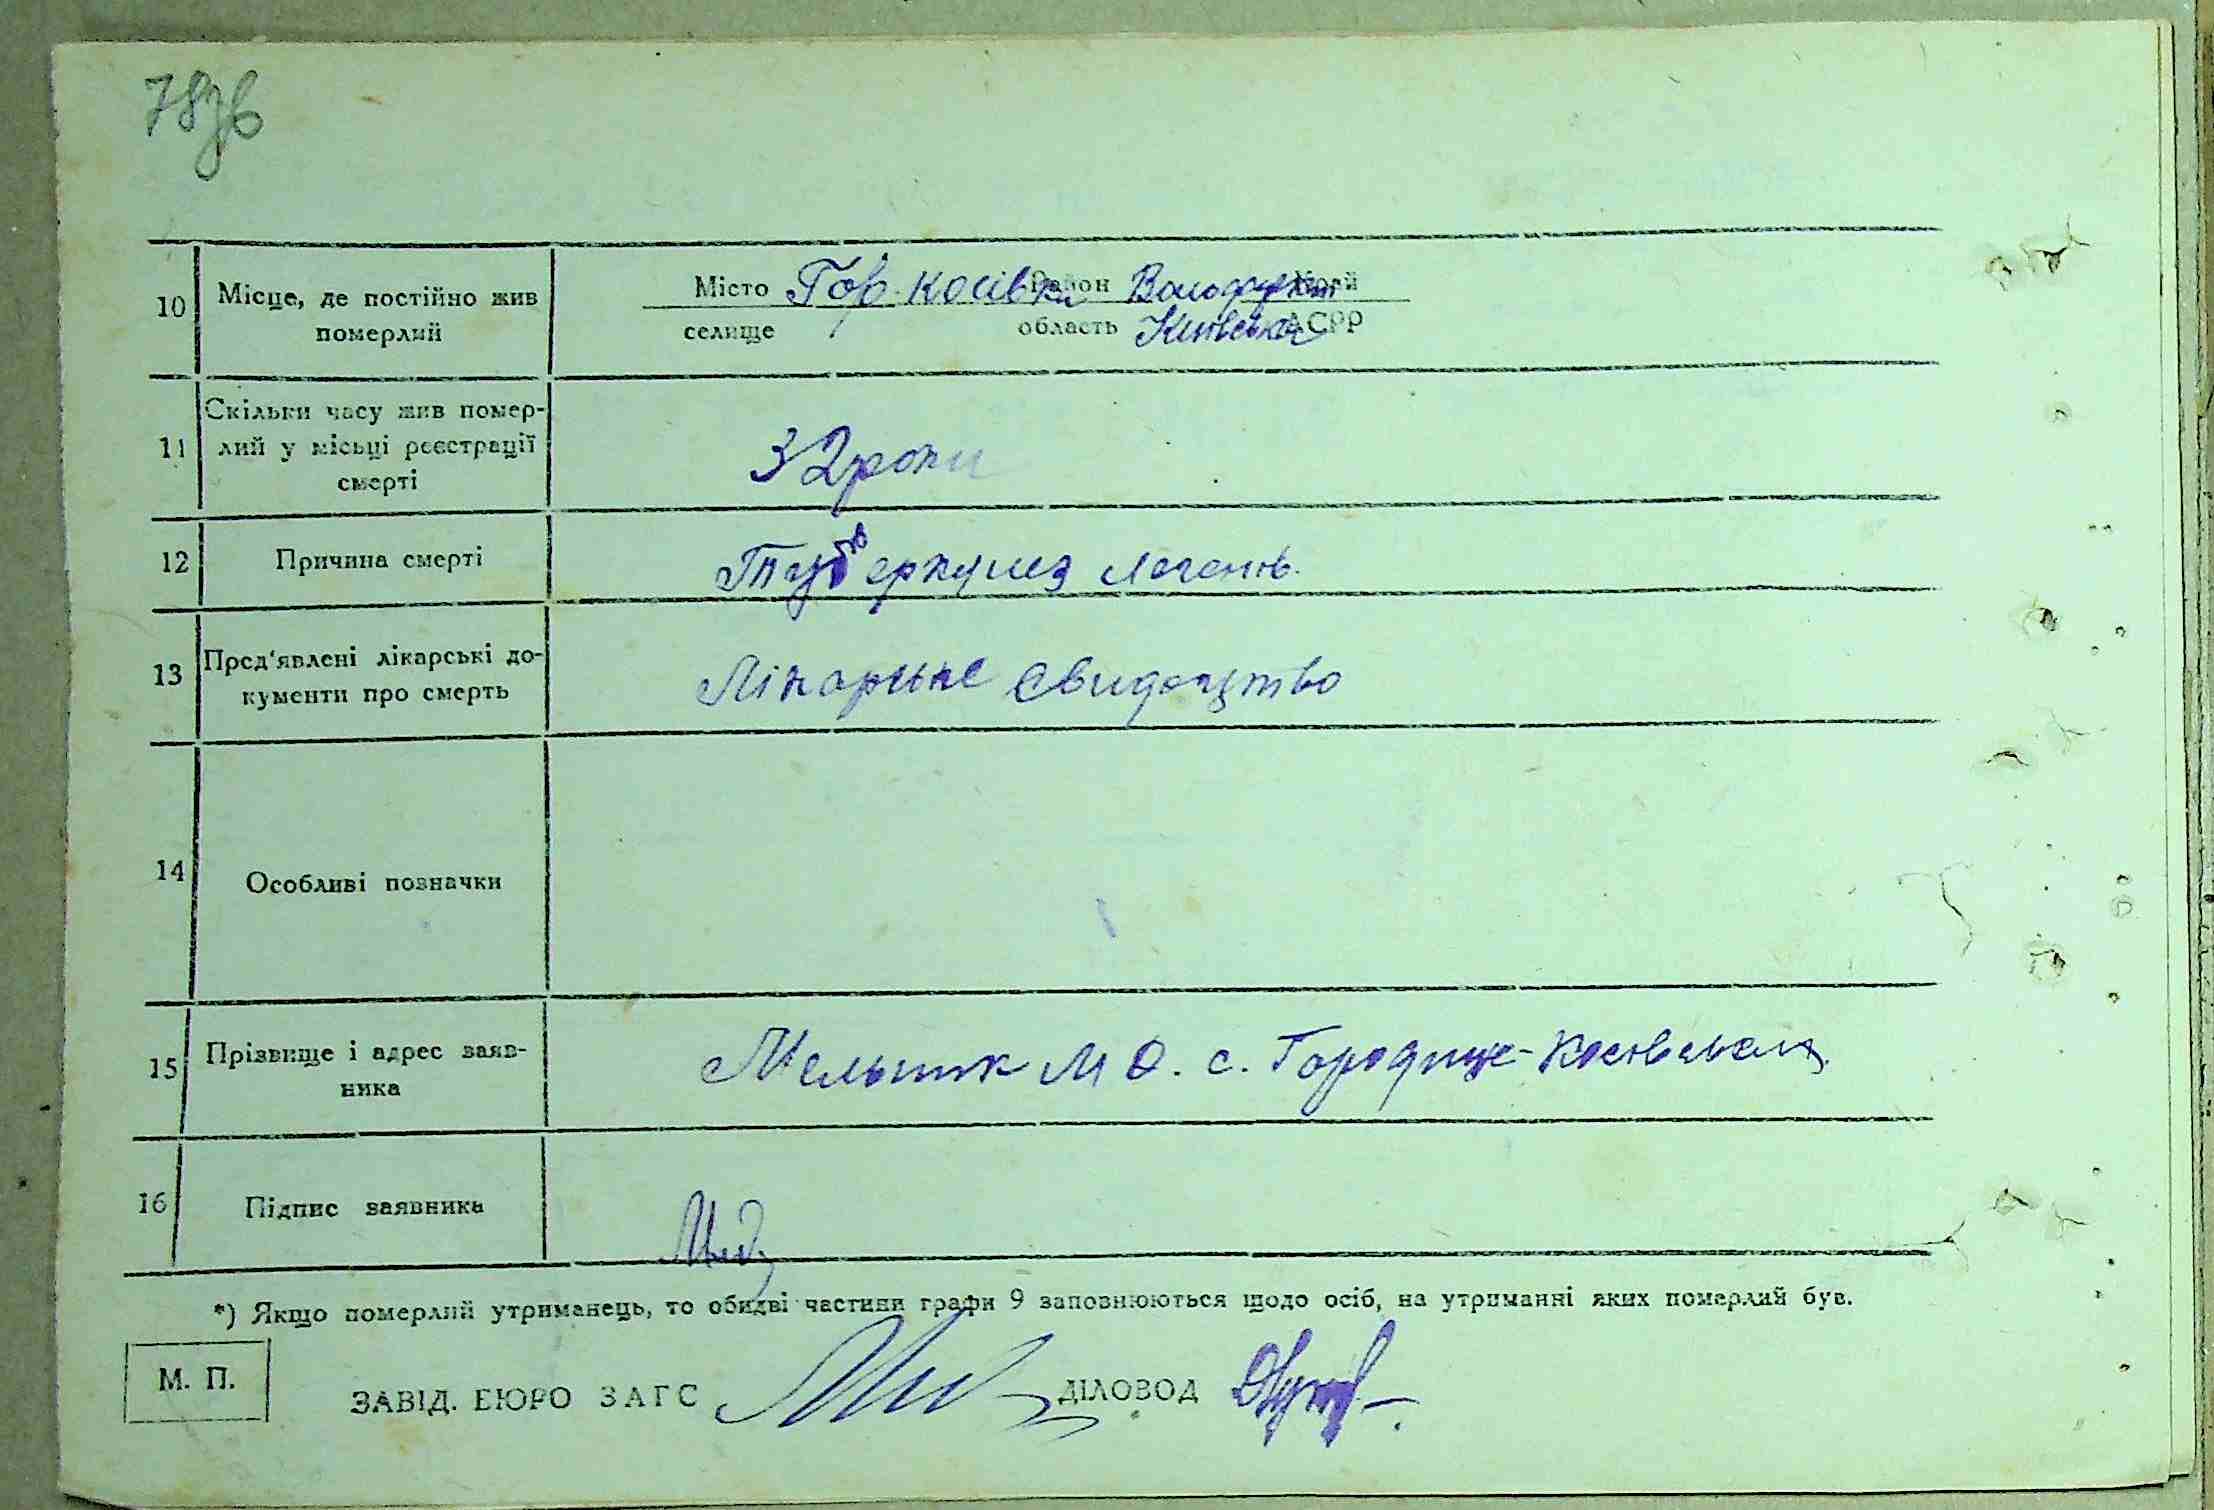 787б
10 Місце, де постійно жив Місто Гор. Косівка Район Володарськ Край
померлий селище область Київська АСРР
Скільки часу жив помер-
11 лий у місьці реєстрації 32 роки
смерті
12 Причина смерті Туберкульоз легенів.
13 Пред'явлені лікарські до- Лікарське свидоцтво
кументи про смерть
14 Особливі позначки
15 Прізвище і адрес заяв- Мельник М О. с. Городище-Косівська
ника
16 Підпис заявника
*) Якщо померлий утриманець, то обидві частини графи 9 заповнюються щодо осіб, на утриманні яких померлий був.
М. П.
ЗАВІД. БЮРО ЗАГС ДІЛОВОД